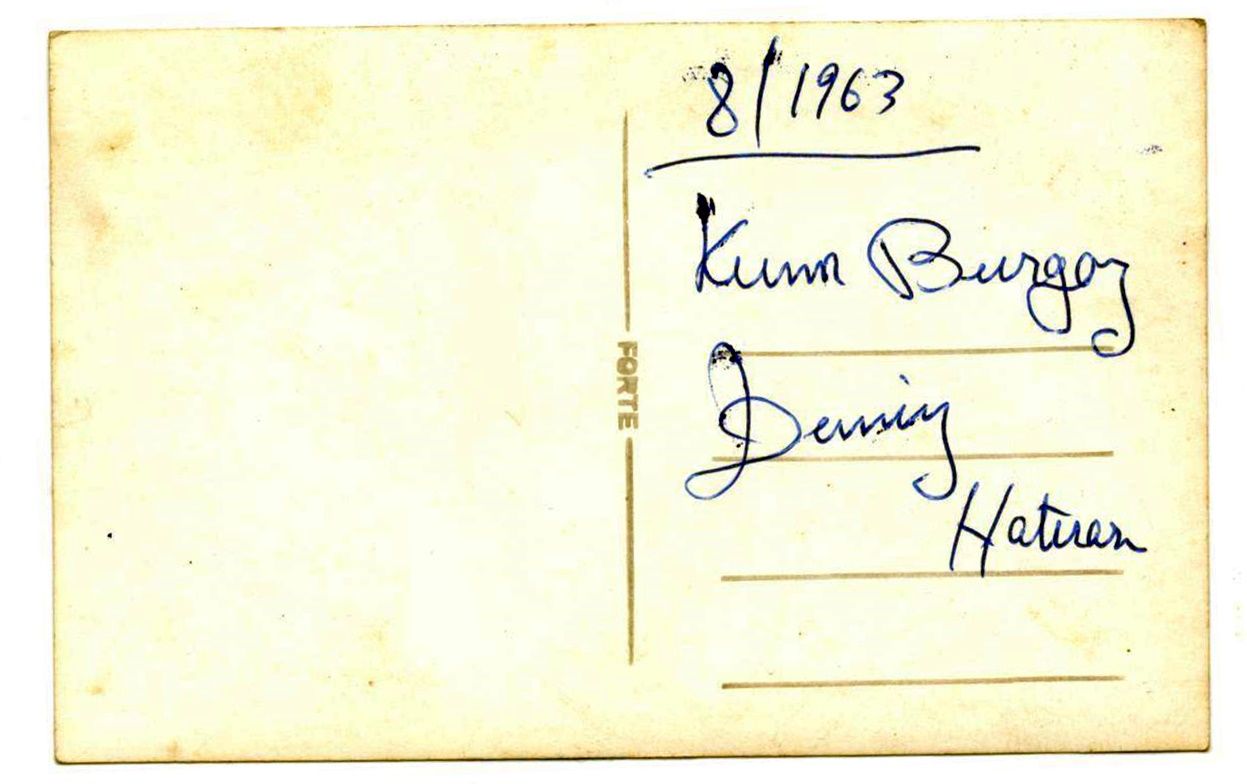 8/1963
Kum Burgaz
Deniz
Hatırası
FORTE